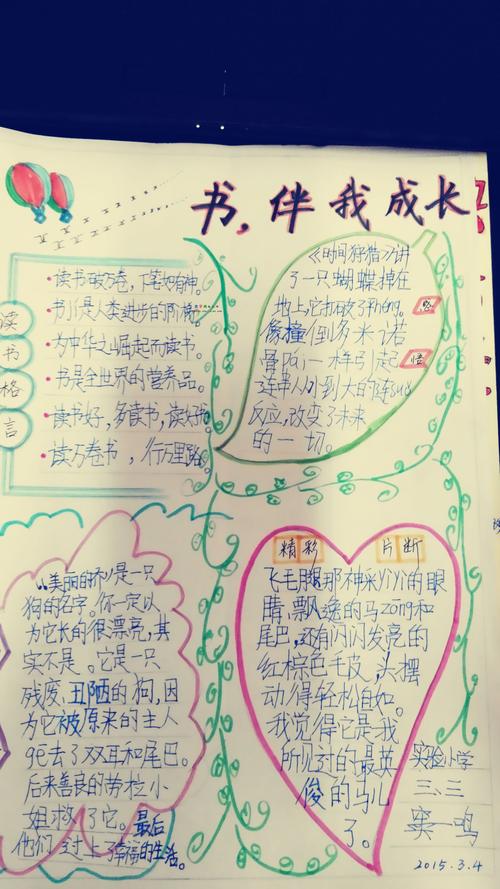 书,伴我成长
读书格言
读书破万卷,下笔如有神。
书川是人类进步的阶梯。
为中华之崛起而读书。
书是全世界的营养品。
读书好,多读书,读好书
读万卷书,行万里路。
《时间狩猎》讲
了一只蝴蝶掉在
地上,它打破了平héng。
像撞倒多米诺
骨响一样引起
连串从小到大的连suǒ
反应,改变了未来
的一切。
感
悟
美丽的乔少是一只
狗的名字。你一定以
为它长的很漂亮,其
实不是。它是一只
残废、丑陋的狗,因
为它被原来的主人
gē去了双耳和尾巴。
后来善良的劳拉小
姐救了它。最后
他们过上了幸福的生活。
精彩 片断
飞毛腿那神采yìyì的眼
睛、飘逸的马zōng和
尾巴,还有闪闪发亮的
红棕色毛皮,头摆
动得轻松自如。
我觉得它是我
所见过的最英
俊的马儿
了。
实验小学
三、三
窦一鸣
2015.3.4